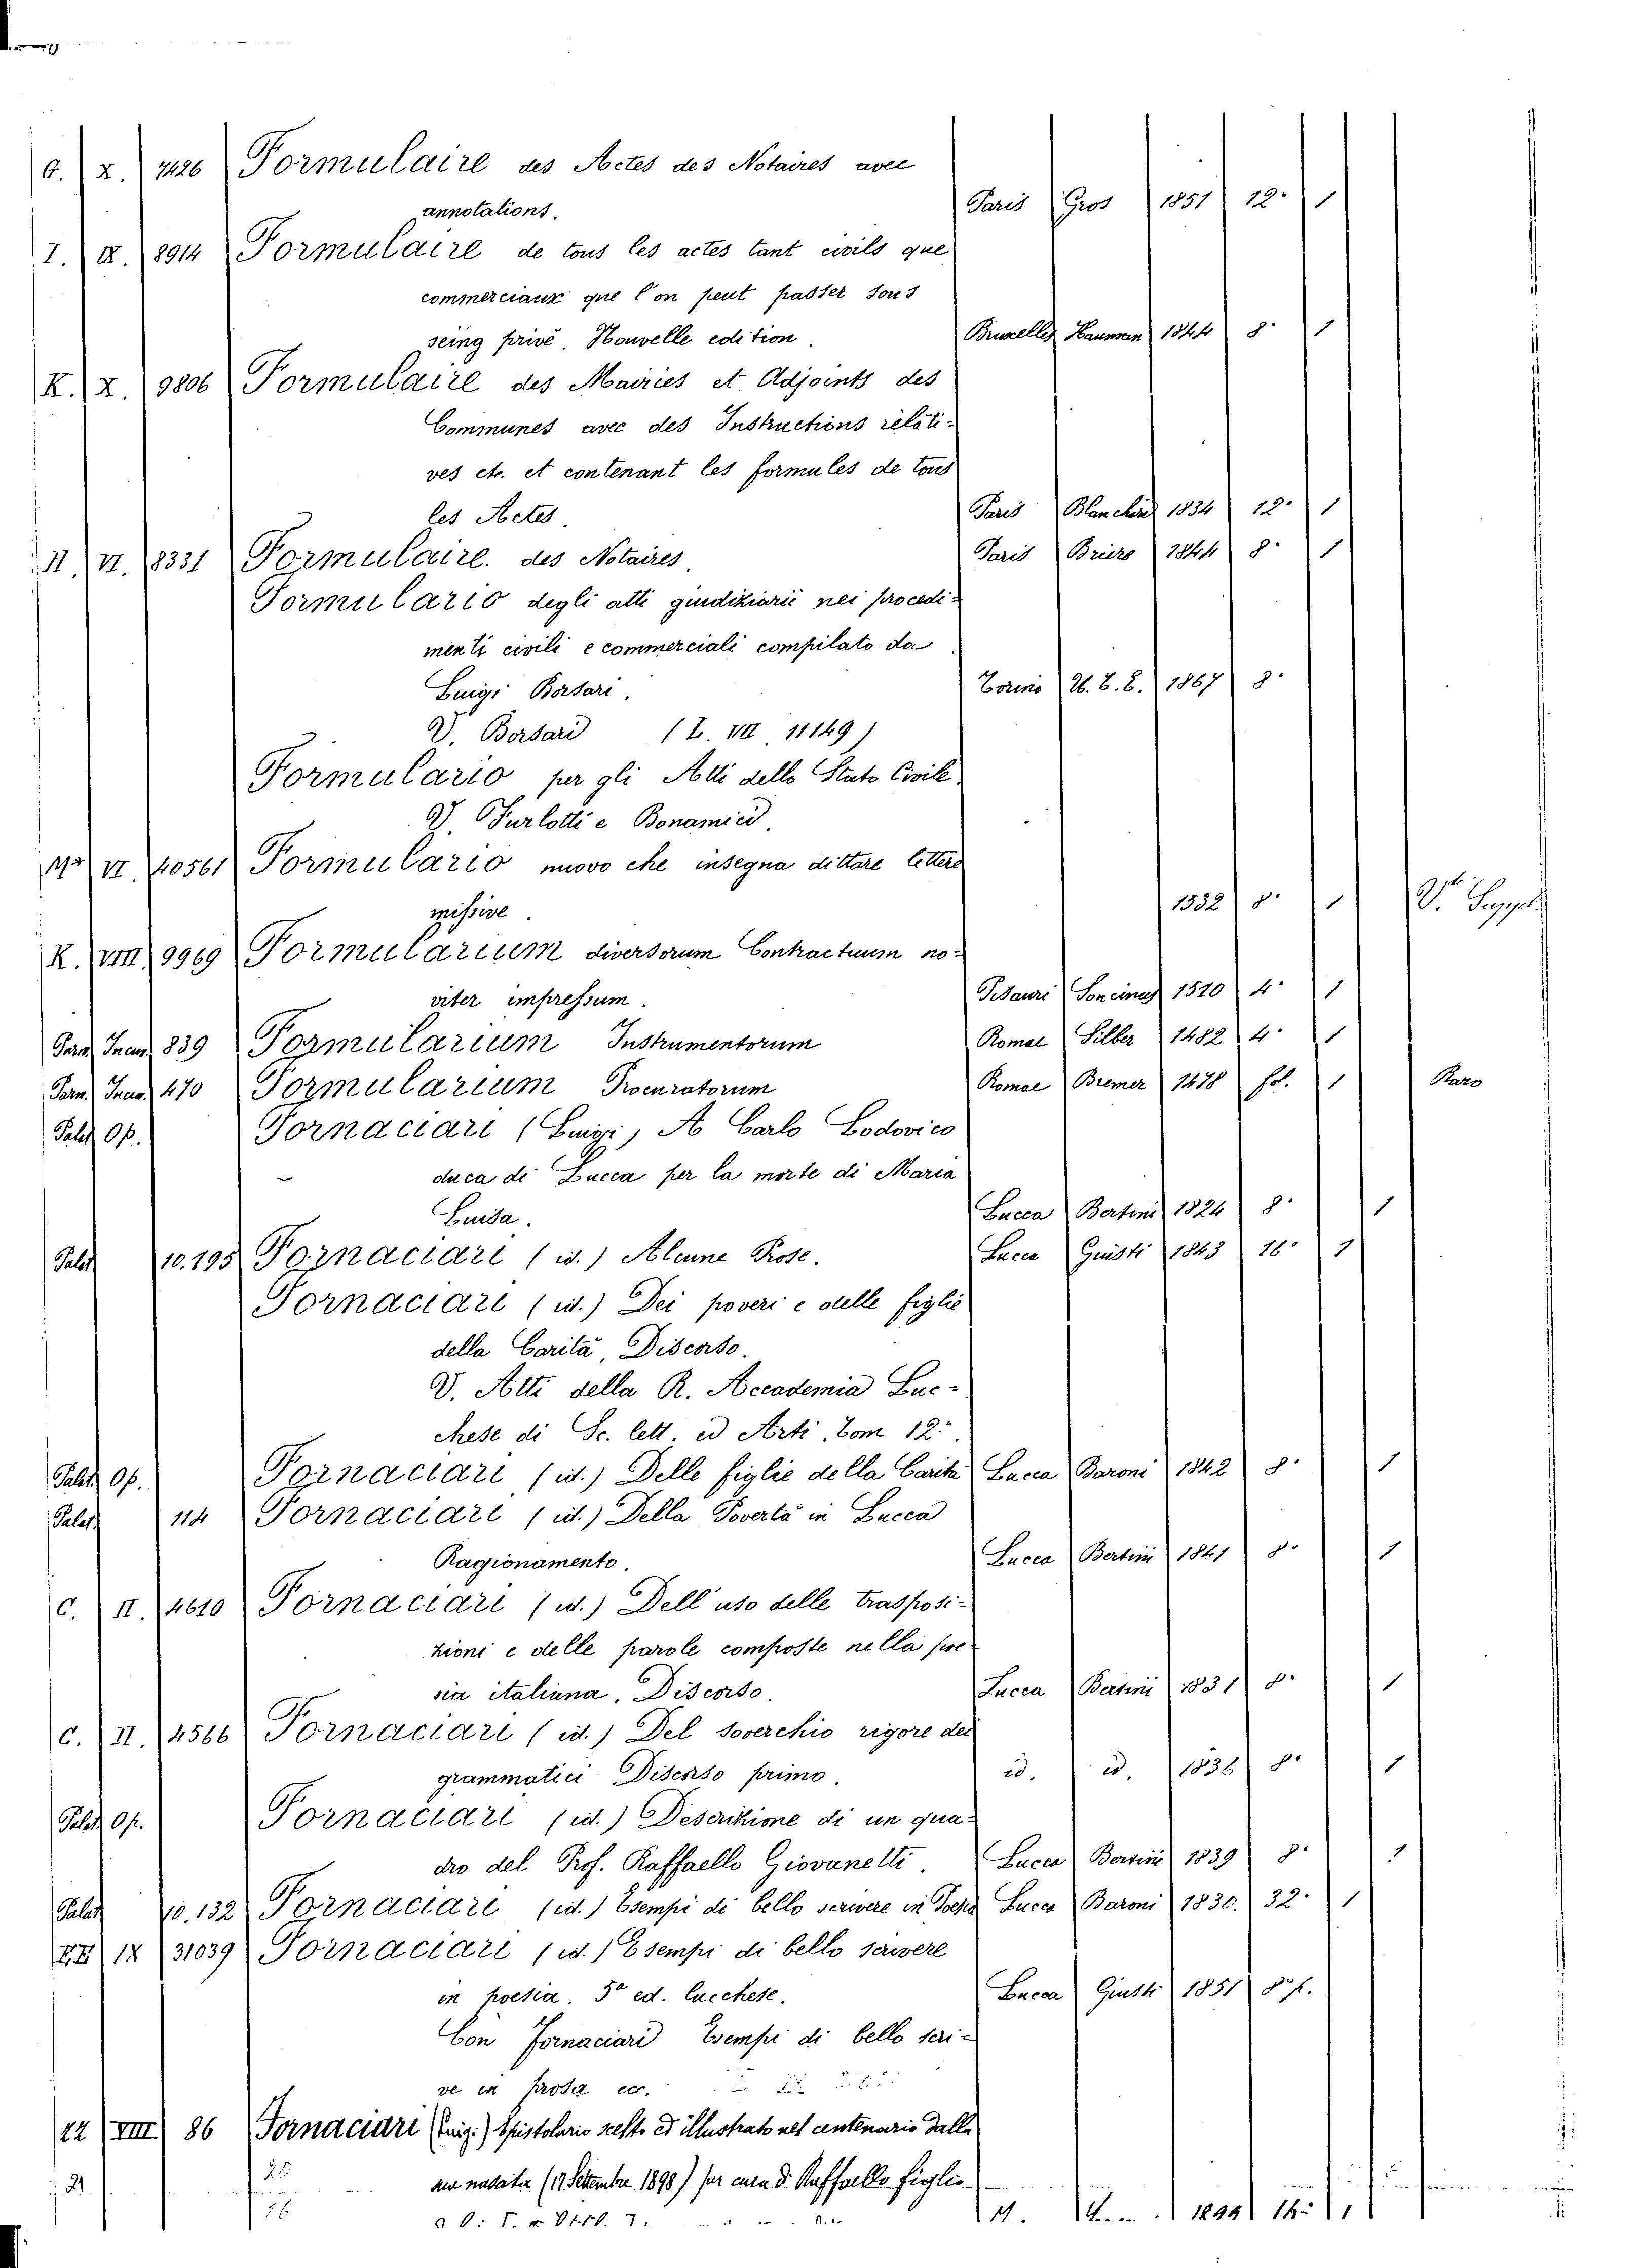 G. X. 7426 Formulaire des Actes des Notaires avec
annotations. Paris Gros 1851 12° 1
I. IX. 8914 Formulaire de tous les actes tant civils que
commerciaux que l'on peut passer sous
seing privé. Nouvelle edition. Bruxelles Haumann 1844 8° 1
K. X. 9806 Formulaire des Mairies et Adjoints des
Communes avec des Instructions relati-
ves etc. et contenant les formules de tous
les Actes. Paris Blanchard 1834 12° 1
II. VI. 8331 Formulaire des Notaires. Paris Briere 1844 8° 1
Formulario degli atti giudiziarii nei procedi-
menti civili e commerciali compilato da
Luigi Borsari. Torino U. T. E. 1867 8°
V. Borsari (L. VII 11149)
Formulario per gli Atti dello Stato Civile
V. Furlotti e Bonamici.
VI. 40561 Formulario nuovo che insegna dittare lettere
missive. 1532 8° 1 V. Suppl.
K. VIII. 9969 Formularium diversorum Contractuum no-
viter impressum. Pisauri Soncinus 1510 4° 1
Parm. Incun. 839 Formularium Instrumentorum Romae Silber 1482 4° 1
Parm. Incun. 470 Formularium Procuratorum Romae Bremer 1478 fol. 1 Raro
Palat. Op. Fornaciari (Luigi), A Carlo Lodovico
duca di Lucca per la morte di Maria
Luisa. Lucca Bertini 1824 8° 1
Palat. 10.195 Fornaciari (id.) Alcune Prose. Lucca Giusti 1843 16° 1
Fornaciari (id.) Dei poveri e delle figlie
della Carità, Discorso.
V. Atti della R. Accademia Luc-
chese di Sc. lett. ed Arti. Tom 12°.
Palat. Op. Fornaciari (id.) Delle figlie della Carità Lucca Baroni 1842 8° 1
Palat. 114 Fornaciari (id.) Della Povertà in Lucca
Ragionamento. Lucca Bertini 1841 8° 1
C. II. 4610 Fornaciari (id.) Dell'uso delle trasposi-
zioni e delle parole composte nella poe-
sia italiana, Discorso. Lucca Bertini 1831 8° 1
C. II. 4566 Fornaciari (id.) Del soverchio rigore dei
grammatici Discorso primo. id. id. 1836 8° 1
Palat. Op. Fornaciari (id.) Descrizione di un qua-
dro del Prof. Raffaello Giovanetti. Lucca Bertini 1839 8° 1
Palat. 10.132 Fornaciari (id.) Esempi di bello scrivere in Poesia Lucca Baroni 1830. 32° 1
IX 31039 Fornaciari (id.) Esempi di bello scrivere
in poesia. 5a ed. lucchese. Lucca Giusti 1851 8° p.
Con Fornaciari Esempi di bello scri-
ve in prosa ecc.
22 VIII 86 Fornaciari (Luig.) Epistolario scelto ed illustrato nel centenario dalla
sua nascita (17 Settembre 1898) per cura di Raffaello figlio